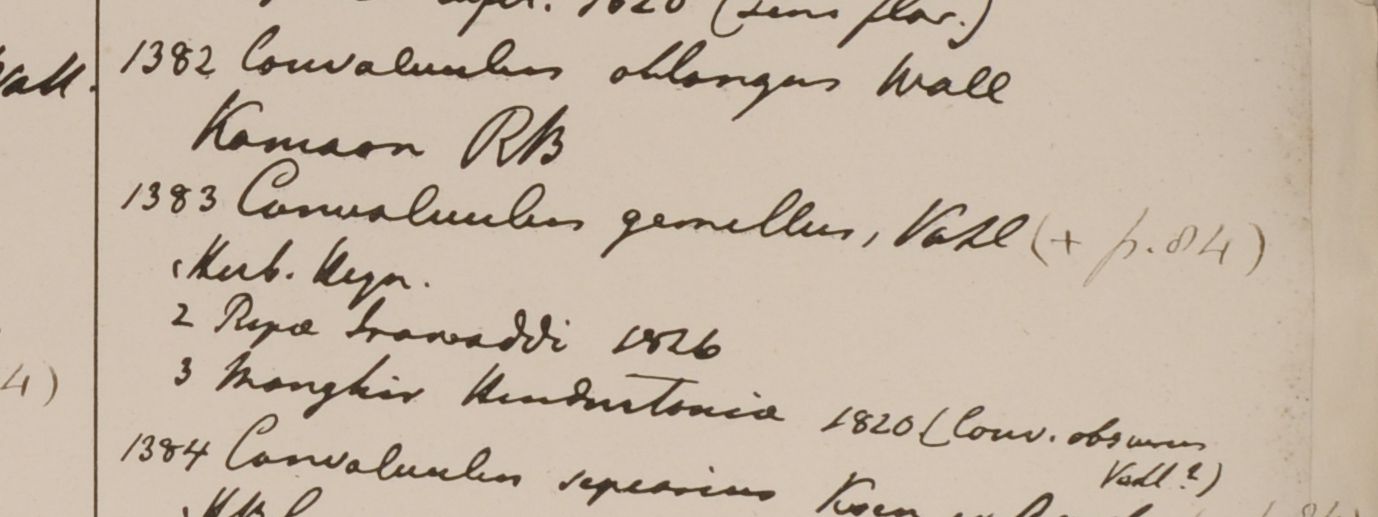 1820 (sens flor.)
Wall.
1382 Convolvulus oblongus Wall
Kamaon RB
1383 Convolvulus gemellus, Vahl (+ p. 84)
1 Herb. Heyn.
2 Ripa Irawaddi 1826
3 Monghir Hindustania 1820 (Conv. obscurus
Vahl?)
4)
1384 Convolvulus sepiarius Koen